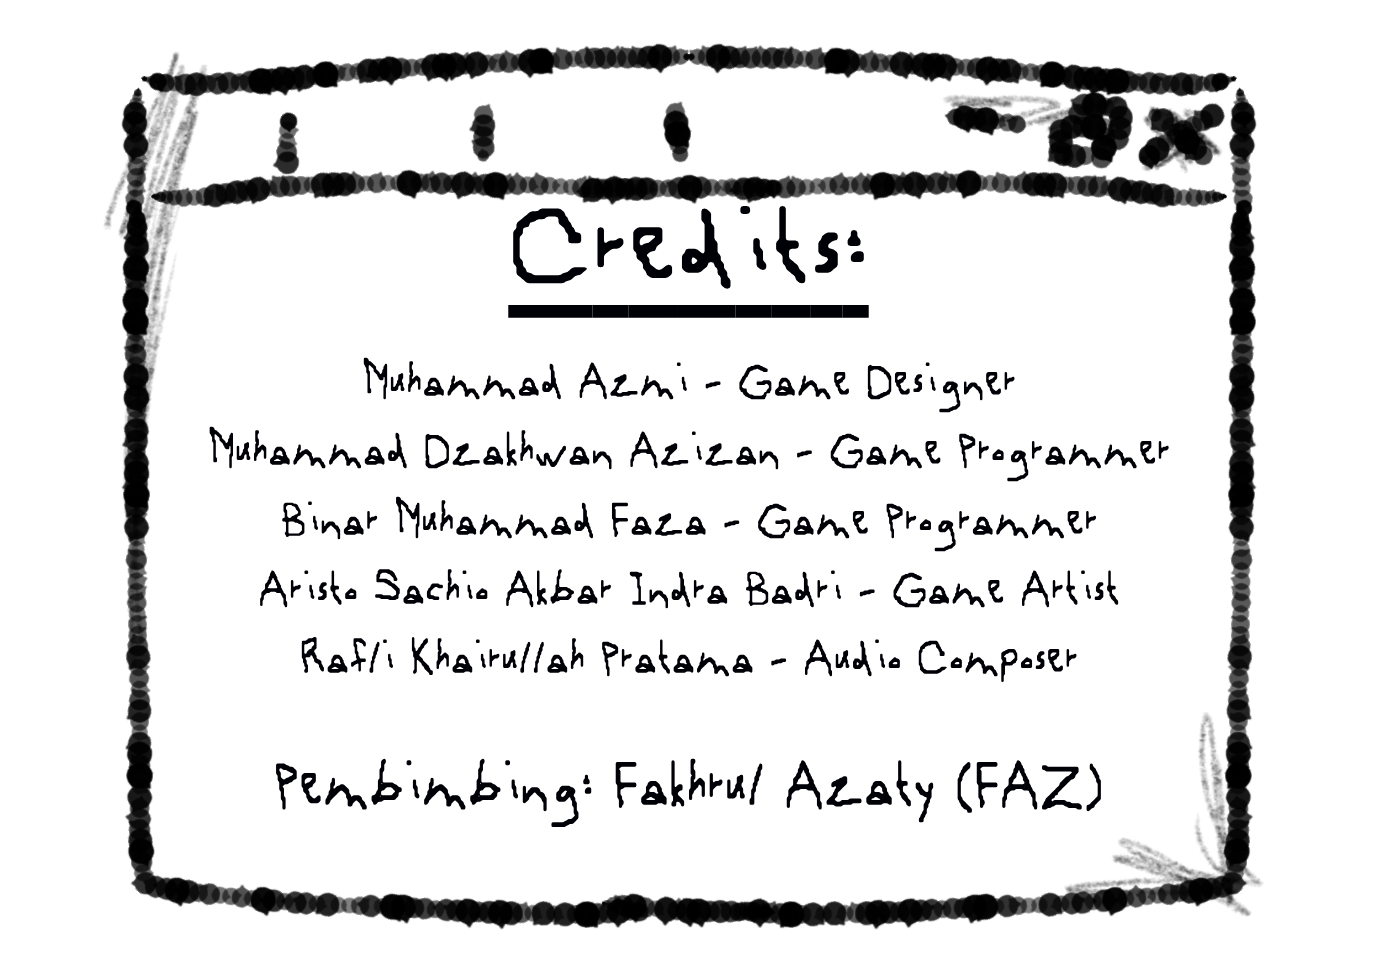 Credits:
Muhammad Azmi - Game Designer
Muhammad Dzakhwan Azizan - Game Programmer
Binar Muhammad Faza - Game Programmer
Aristo Sachio Akbar Indra Badri - Game Artist
Rafli Khairullah Pratama - Audio Composer
Pembimbing: Fakhrul Azaty (FAZ)